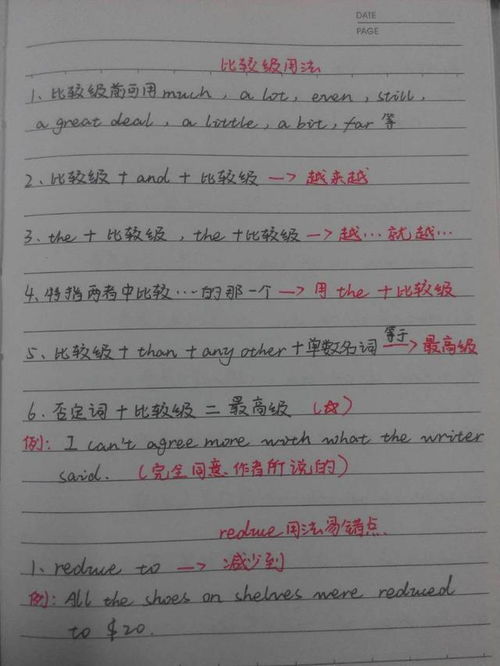 DATE
PAGE
比较级用法
1、比较级前可用 much, a lot, even, still,
a great deal, a little, a bit, far 等
2、比较级 + and + 比较级 —> 越来越
3、the + 比较级, the + 比较级 —> 越…就越…
4、特指两者中比较…的那一个 —> 用 the + 比较级
5、比较级 + than + any other + 单数名词 等于—> 最高级
6、否定词 + 比较级 = 最高级 (☆)
例: I can't agree more with what the writer
said. (完全同意作者所说的)
reduce 用法易错点
1、reduce to —> 减少到
例: All the shoes on shelves were reduced
to $20.